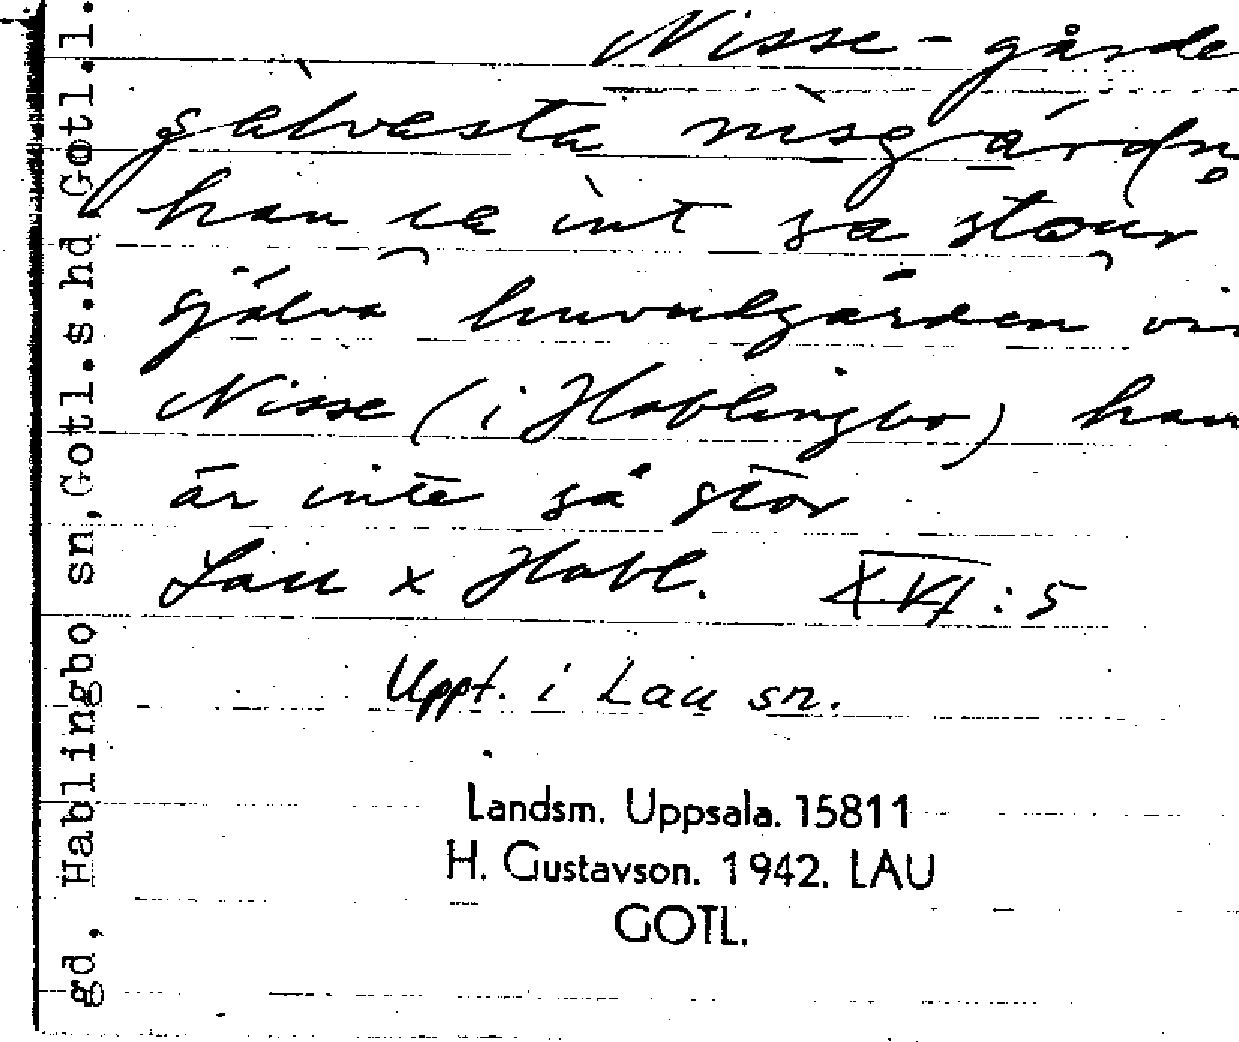 Nisse-gårde
gälvasta nisgardn
han ïe int sa stour
själva huvudgården vi
Nisse (i Hablingbo) han
är inte så stor
Lau x Habl. XVI:5
Uppt. i Lau sn.
Landsm. Uppsala. 15811
H. Gustavson. 1942. LAU
GOTL.
gd, Hablingbo sn, Gotl.s.hd Gotl.l.